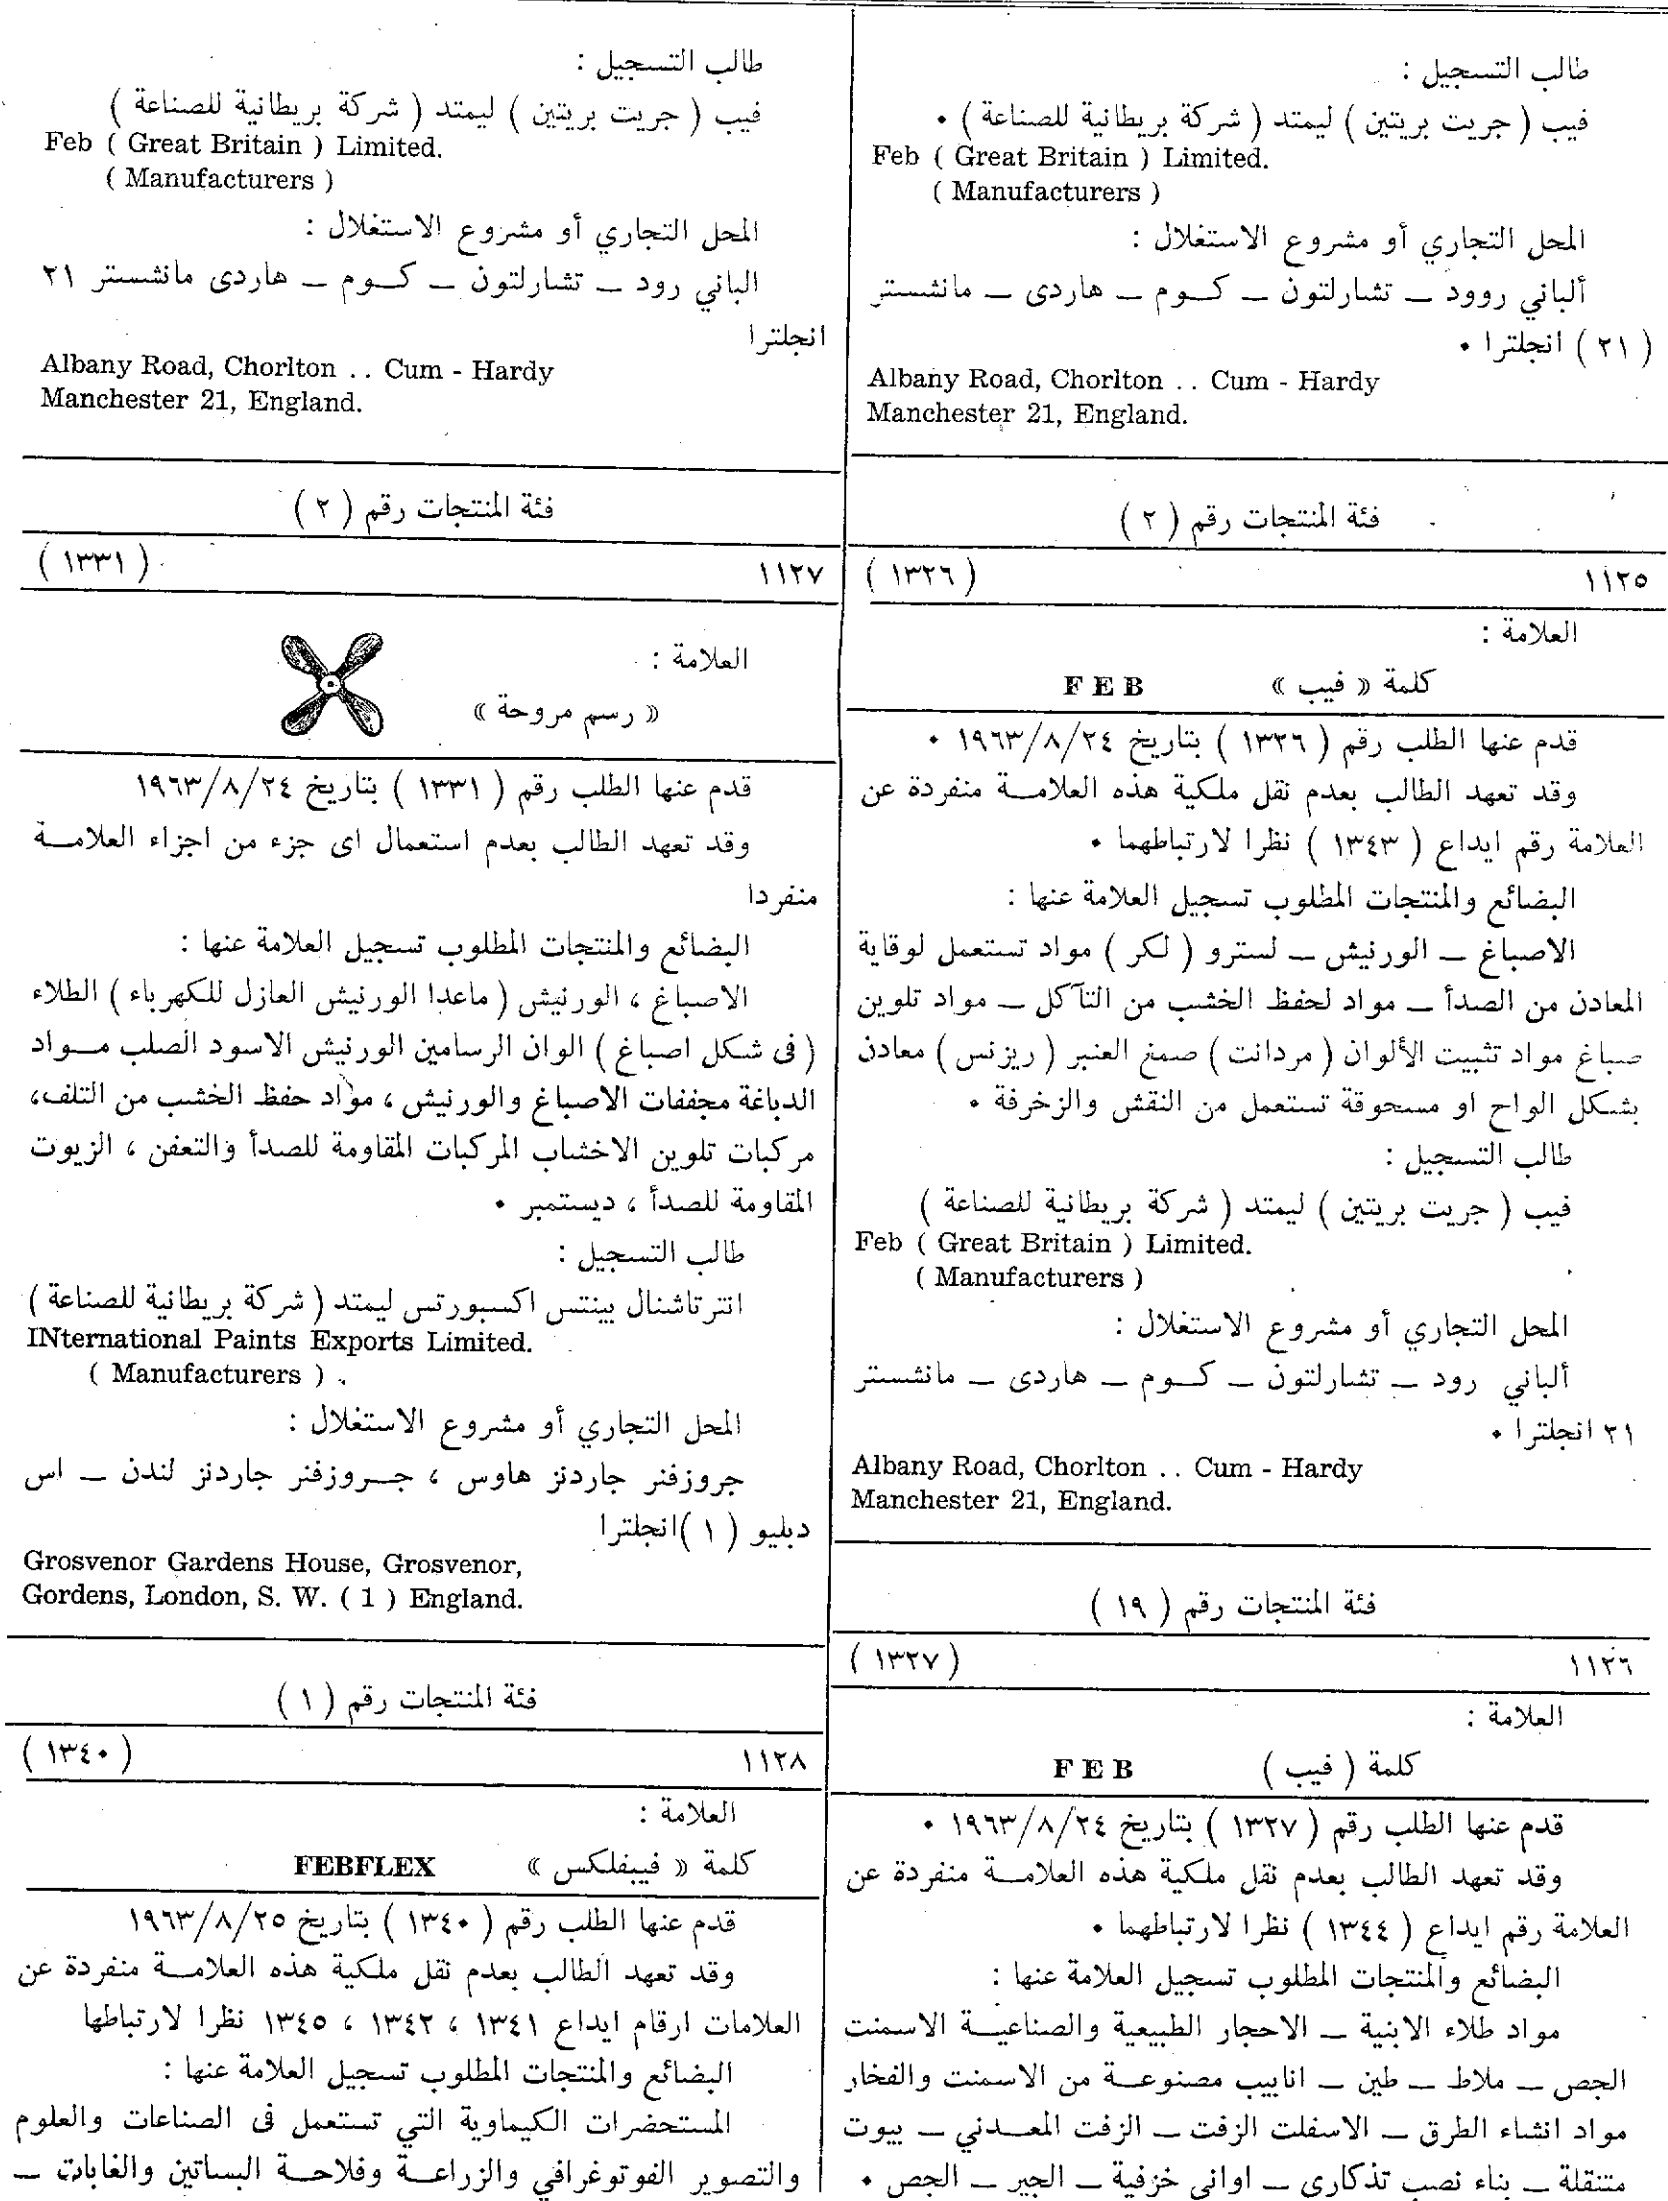 طالب التسجيل :
فيب ( جريت بريتين ) ليمتد ( شركة بريطانية للصناعة ) •
Feb ( Great Britain ) Limited.
( Manufacturers )
المحل التجاري أو مشروع الاستغلال :
ألباني روود ــ تشارلتون ــ كــوم ــ هاردى ــ مانشستر
( ٢١ ) انجلترا •
Albany Road, Chorlton .. Cum - Hardy
Manchester 21, England.
فئة المنتجات رقم ( ٢ )
١١٢٥ ( ١٣٢٦ )
العلامة :
كلمة « فيب » FEB
قدم عنها الطلب رقم ( ١٣٢٦ ) بتاريخ ١٩٦٣/٨/٢٤ •
وقد تعهد الطالب بعدم نقل ملكية هذه العلامــة منفردة عن
العلامة رقم ايداع ( ١٣٤٣ ) نظرا لارتباطهما •
البضائع والمنتجات المطلوب تسجيل العلامة عنها :
الاصباغ ــ الورنيش ــ لسترو ( لكر ) مواد تستعمل لوقاية
المعادن من الصدأ ــ مواد لحفظ الخشب من التآكل ــ مواد تلوين
صباغ مواد تثبيت الألوان ( مردانت ) صمغ العنبر ( ريزنس ) معادن
بشكل الواح او مسحوقة تستعمل من النقش والزخرفة •
طالب التسجيل :
فيب ( جريت بريتين ) ليمتد ( شركة بريطانية للصناعة )
Feb ( Great Britain ) Limited.
( Manufacturers )
المحل التجاري أو مشروع الاستغلال :
ألباني رود ــ تشارلتون ــ كــوم ــ هاردى ــ مانشستر
٢١ انجلترا •
Albany Road, Chorlton .. Cum - Hardy
Manchester 21, England.
فئة المنتجات رقم ( ١٩ )
١١٢٦ ( ١٣٢٧ )
العلامة :
كلمة ( فيب ) FEB
قدم عنها الطلب رقم ( ١٣٢٧ ) بتاريخ ١٩٦٣/٨/٢٤ •
وقد تعهد الطالب بعدم نقل ملكية هذه العلامــة منفردة عن
العلامة رقم ايداع ( ١٣٤٤ ) نظرا لارتباطهما •
البضائع والمنتجات المطلوب تسجيل العلامة عنها :
مواد طلاء الابنية ــ الاحجار الطبيعية والصناعيــة الاسمنت
الجص ــ ملاط ــ طين ــ انابيب مصنوعــة من الاسمنت والفخار
مواد انشاء الطرق ــ الاسفلت الزفت ــ الزفت المعــدني ــ بيوت
متنقلة ــ بناء نصب تذكارى ــ اوانى خزفية ــ الجير ــ الجص •
طالب التسجيل :
فيب ( جريت بريتين ) ليمتد ( شركة بريطانية للصناعة )
Feb ( Great Britain ) Limited.
( Manufacturers )
المحل التجاري أو مشروع الاستغلال :
الباني رود ــ تشارلتون ــ كــوم ــ هاردى مانشستر ٢١
انجلترا
Albany Road, Chorlton .. Cum - Hardy
Manchester 21, England.
فئة المنتجات رقم ( ٢ )
١١٢٧ ( ١٣٣١ )
العلامة :
« رسم مروحة »
قدم عنها الطلب رقم ( ١٣٣١ ) بتاريخ ١٩٦٣/٨/٢٤
وقد تعهد الطالب بعدم استعمال اى جزء من اجزاء العلامــة
منفردا
البضائع والمنتجات المطلوب تسجيل العلامة عنها :
الاصباغ ، الورنيش ( ماعدا الورنيش العازل للكهرباء ) الطلاء
( فى شكل اصباغ ) الوان الرسامين الورنيش الاسود الصلب مــواد
الدباغة مجففات الاصباغ والورنيش ، مواد حفظ الخشب من التلف،
مركبات تلوين الاخشاب المركبات المقاومة للصدأ والتعفن ، الزيوت
المقاومة للصدأ ، ديستمبر •
طالب التسجيل :
انترتاشنال بينتس اكسبورتس ليمتد ( شركة بريطانية للصناعة )
INternational Paints Exports Limited.
( Manufacturers ) .
المحل التجاري أو مشروع الاستغلال :
جروزفنر جاردنز هاوس ، جــروزفنر جاردنز لندن ــ اس
دبليو ( ١ )انجلترا
Grosvenor Gardens House, Grosvenor,
Gordens, London, S. W. ( 1 ) England.
فئة المنتجات رقم ( ١ )
١١٢٨ ( ١٣٤٠ )
العلامة :
كلمة « فيبفلكس » FEBFLEX
قدم عنها الطلب رقم ( ١٣٤٠ ) بتاريخ ١٩٦٣/٨/٢٥
وقد تعهد الطالب بعدم نقل ملكية هذه العلامــة منفردة عن
العلامات ارقام ايداع ١٣٤١ ، ١٣٤٢ ، ١٣٤٥ نظرا لارتباطها
البضائع والمنتجات المطلوب تسجيل العلامة عنها :
المستحضرات الكيماوية التي تستعمل فى الصناعات والعلوم
والتصوير الفوتوغرافي والزراعــة وفلاحــة البساتين والغابات ــ